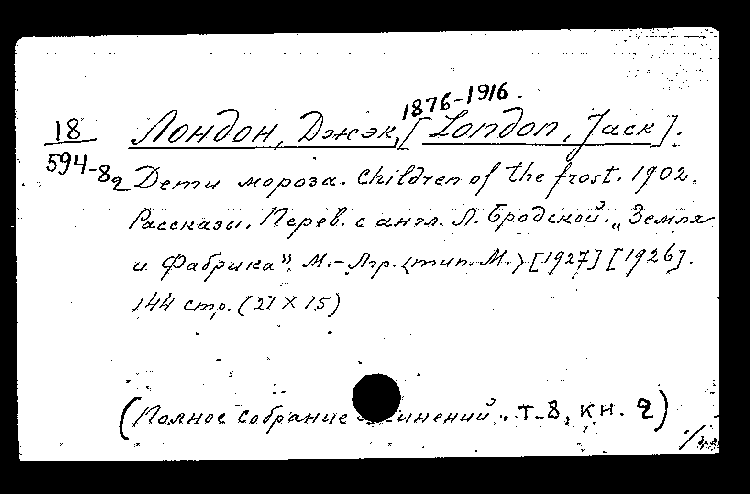 1876-1916.
18 Лондон, Джэк, [London, Jack].
594-82 Дети мороза. Children of the frost. 1902.
Рассказы. Перев. с англ. Л. Бродской. „Земля
и Фабрика". М.-Лгр. (тип. М.) [1927] [1926].
144 стр. (21 X 15)
(Полное собрание сочинений. т. 8, кн. 2)